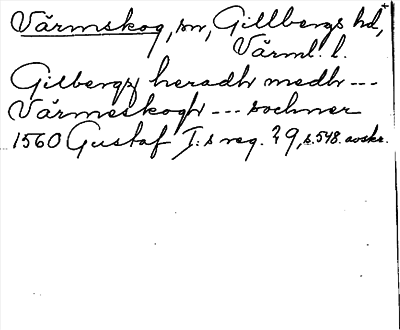 Värmskog, sn, Gillbergs hd,
Värml. l.
Gilbergz heradh medh ---
Värmeskogh --- sochner
1560 Gustaf I:s reg. 29, s. 548. avskr.